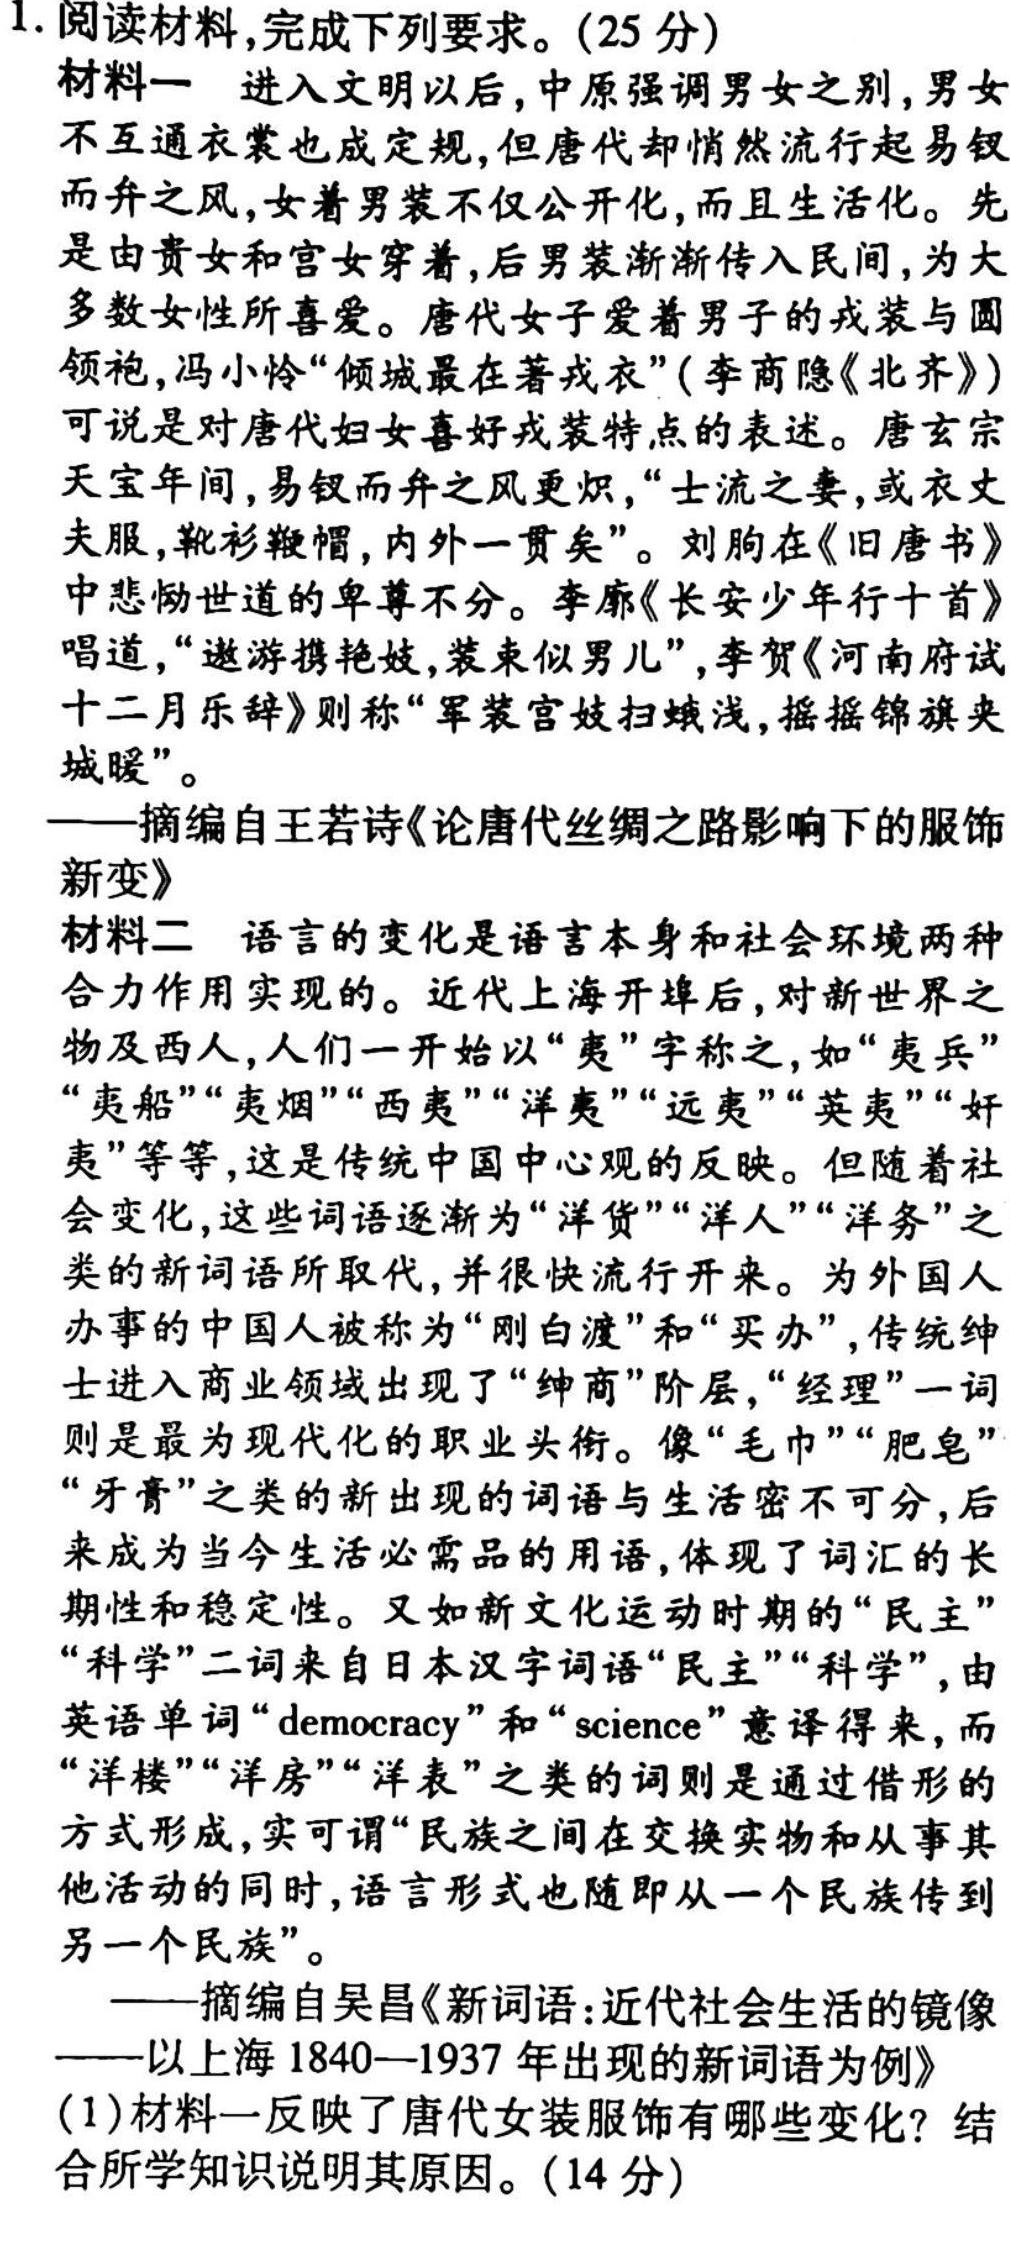 1. 阅读材料,完成下列要求。(25 分)
材料一 进入文明以后,中原强调男女之别,男女
不互通衣裳也成定规,但唐代却悄然流行起易钗
而弁之风,女着男装不仅公开化,而且生活化。先
是由贵女和宫女穿着,后男装渐渐传入民间,为大
多数女性所喜爱。唐代女子爱着男子的戎装与圆
领袍,冯小怜“倾城最在著戎衣”(李商隐《北齐》)
可说是对唐代妇女喜好戎装特点的表述。唐玄宗
天宝年间,易钗而弁之风更炽,“士流之妻,或衣丈
夫服,靴衫鞭帽,内外一贯矣”。刘朐在《旧唐书》
中悲恸世道的卑尊不分。李廓《长安少年行十首》
唱道,“遨游携艳妓,装束似男儿”,李贺《河南府试
十二月乐辞》则称“军装宫妓扫蛾浅,摇摇锦旗夹
城暖”。
——摘编自王若诗《论唐代丝绸之路影响下的服饰
新变》
材料二 语言的变化是语言本身和社会环境两种
合力作用实现的。近代上海开埠后,对新世界之
物及西人,人们一开始以“夷”字称之,如“夷兵”
“夷船”“夷烟”“西夷”“洋夷”“远夷”“英夷”“奸
夷”等等,这是传统中国中心观的反映。但随着社
会变化,这些词语逐渐为“洋货”“洋人”“洋务”之
类的新词语所取代,并很快流行开来。为外国人
办事的中国人被称为“刚白渡”和“买办”,传统绅
士进入商业领域出现了“绅商”阶层,“经理”一词
则是最为现代化的职业头衔。像“毛巾”“肥皂”
“牙膏”之类的新出现的词语与生活密不可分,后
来成为当今生活必需品的用语,体现了词汇的长
期性和稳定性。又如新文化运动时期的“民主”
“科学”二词来自日本汉字词语“民主”“科学”,由
英语单词“democracy”和“science”意译得来,而
“洋楼”“洋房”“洋表”之类的词则是通过借形的
方式形成,实可谓“民族之间在交换实物和从事其
他活动的同时,语言形式也随即从一个民族传到
另一个民族”。
——摘编自吴昌《新词语:近代社会生活的镜像
——以上海 1840—1937 年出现的新词语为例》
(1)材料一反映了唐代女装服饰有哪些变化? 结
合所学知识说明其原因。(14 分)